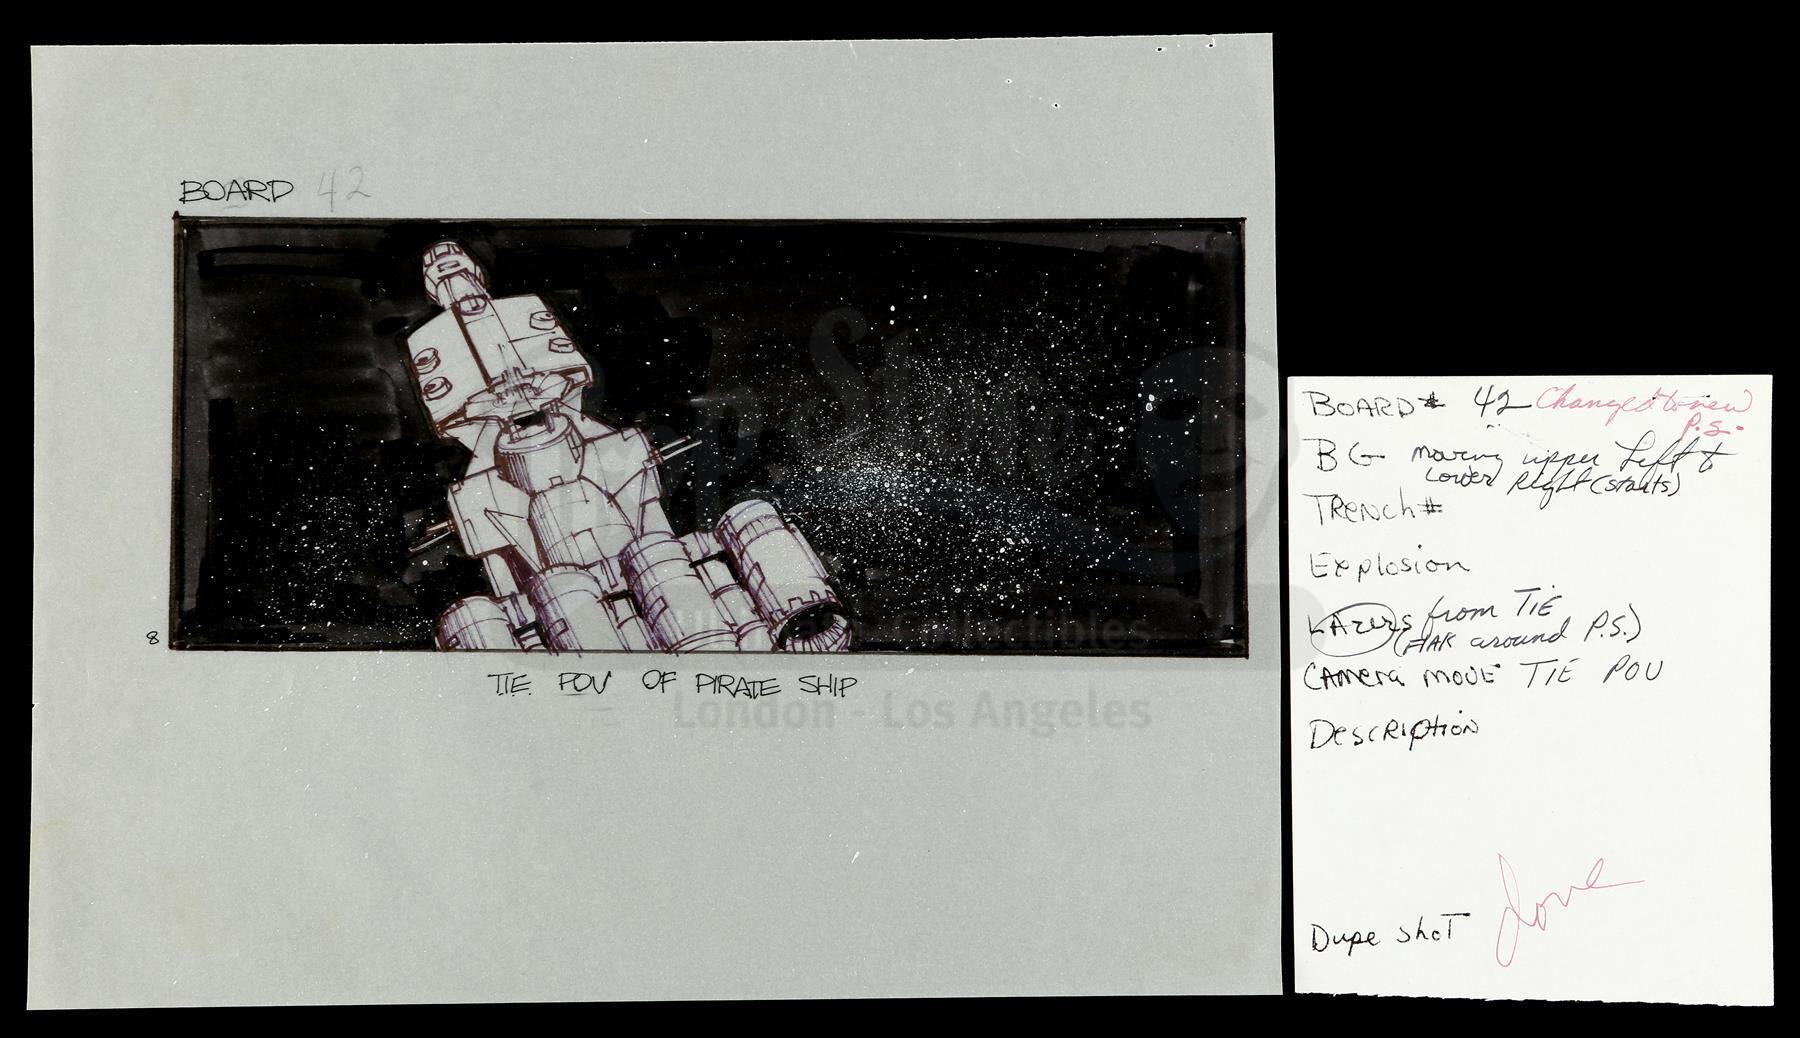 BOARD 42
8
T.I.E. POV OF PIRATE SHIP
Prop Store
Ultimate Collectibles
London - Los Angeles
BOARD# 42 Changed to new
P.S.
BG moving upper Left to
Lower Right (starts)
Trench#
Explosion
LAzers from TIE
(FlAK around P.S.)
CAMera move TIE POV
Description
Dupe shoT
done